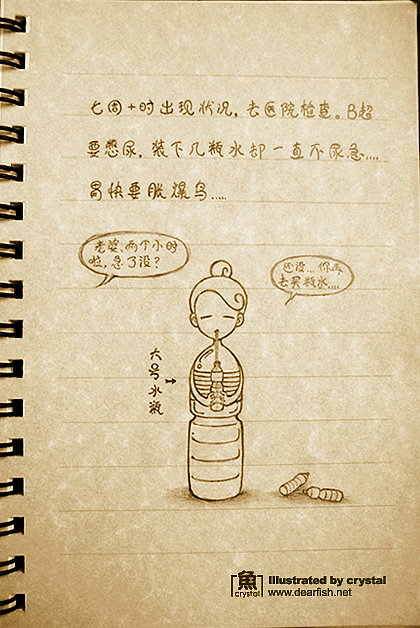 七周+时出现状况，去医院检查。B超
要憋尿，装下几瓶水却一直不尿急....
胃快要胀爆鸟.....
老婆，两个小时
啦，急了没？
还没...你再
去买瓶水....
大号水瓶
魚
crystal
Illustrated by crystal
www.dearfish.net